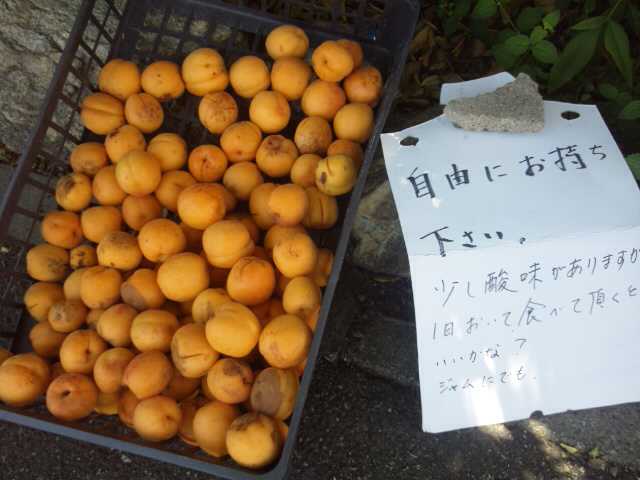 自由にお持ち
下さい。
少し酸味がありますが
1日おいて食べて頂くと
いいかな?
ジャムにでも.